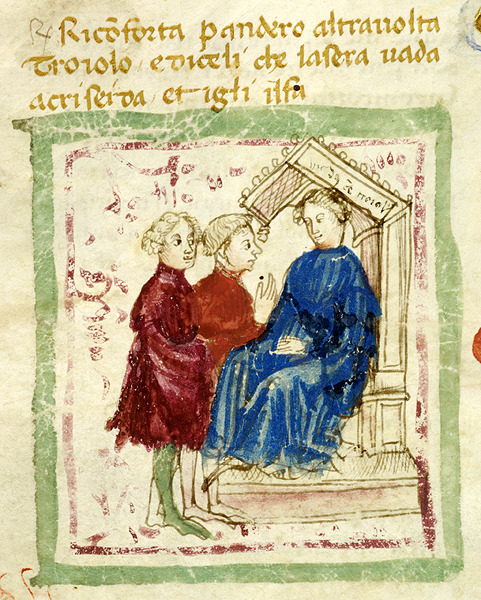 Ricōforta pandero altrauolta
Troiolo ediceli che lasera uada
acriseida et igli ilfa